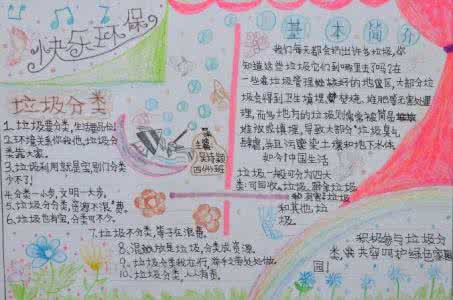 快乐环保
垃圾分类
1、垃圾要分类,生活要品位
2、环境关系你我他,垃圾分
类靠大家。
3、垃圾利用就是宝,别们分类
少不了!
4、分类一小步,文明一大步。
5、垃圾分分类,资源不浪费。
6、垃圾也有宝,分类可不少。
7、垃圾不分类,等于在浪费。
8、混放放是垃圾,分类成资源。
9、垃圾分类我在行,举手之劳处处做。
10、垃圾分类,人人有责。
主编
四(5)班
基本简介
我们每天都会扔出许多垃圾,你
知道这些垃圾它们到哪里去了吗?在
一些垃圾管理较好的地区,大部分垃
圾会得到卫生填埋、焚烧、堆肥等无害处
理,而更多地方的垃圾则常常被简易
堆放或填埋,导致大部分垃圾臭气
肆虐,并且污染土壤和地下水体
如今中国生活
垃圾一般可分为四大
类:可回收垃圾、厨余垃圾
有害垃圾
和其他垃
圾。
积极参与垃圾分
类,共同呵护绿色家
园!